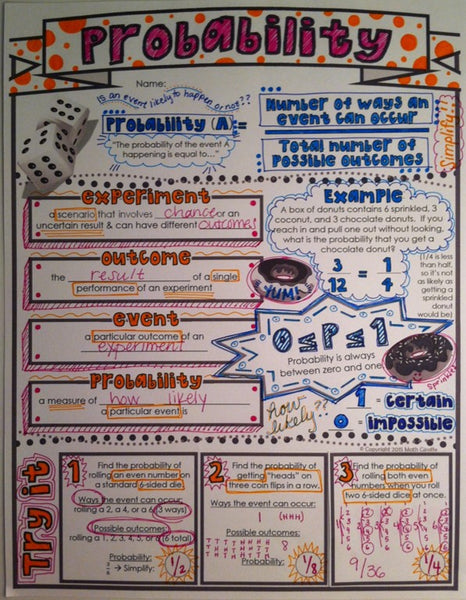 Probability
Name:
Is an event likely to happen or not??
Probability (A) =
"The probability of the event A
happening is equal to..."
Number of ways an
event can occur
Total number of
possible outcomes
Simplify!!!
experiment
a scenario that involves chance or an
uncertain result & can have different outcomes!
outcome
the result of a single
performance of an experiment
event
a particular outcome of an
experiment
Probability
a measure of how likely
a particular event is
Example
A box of donuts contains 6 sprinkled, 3
coconut, and 3 chocolate donuts. If you
reach in and pull one out without looking,
what is the probability that you get a
chocolate donut?
3/12 = 1/4
(1/4 is less
than half,
so it's not
as likely as
getting a
sprinkled
donut
would be)
YUM!
0 ≤ P ≤ 1
Probability is always
between zero and one
Sprinkles
how
likely??
1 = certain
0 = impossible
© Copyright 2015 Math Giraffe
Try it
1
Find the probability of
rolling an even number on
a standard 6-sided die.
Ways the event can occur:
rolling a 2, a 4, or a 6 (3 ways)
Possible outcomes:
rolling a 1, 2, 3, 4, 5, or 6 (6 total)
Probability:
3/6 → Simplify: 1/2
2
Find the probability of
getting "heads" on
three coin flips in a row.
Ways the event can occur:
1 (HHH)
Possible outcomes:
8
Probability: 1/8
3
Find the probability of
rolling both even
numbers when you roll
two 6-sided dice at once.
9/36
1/4